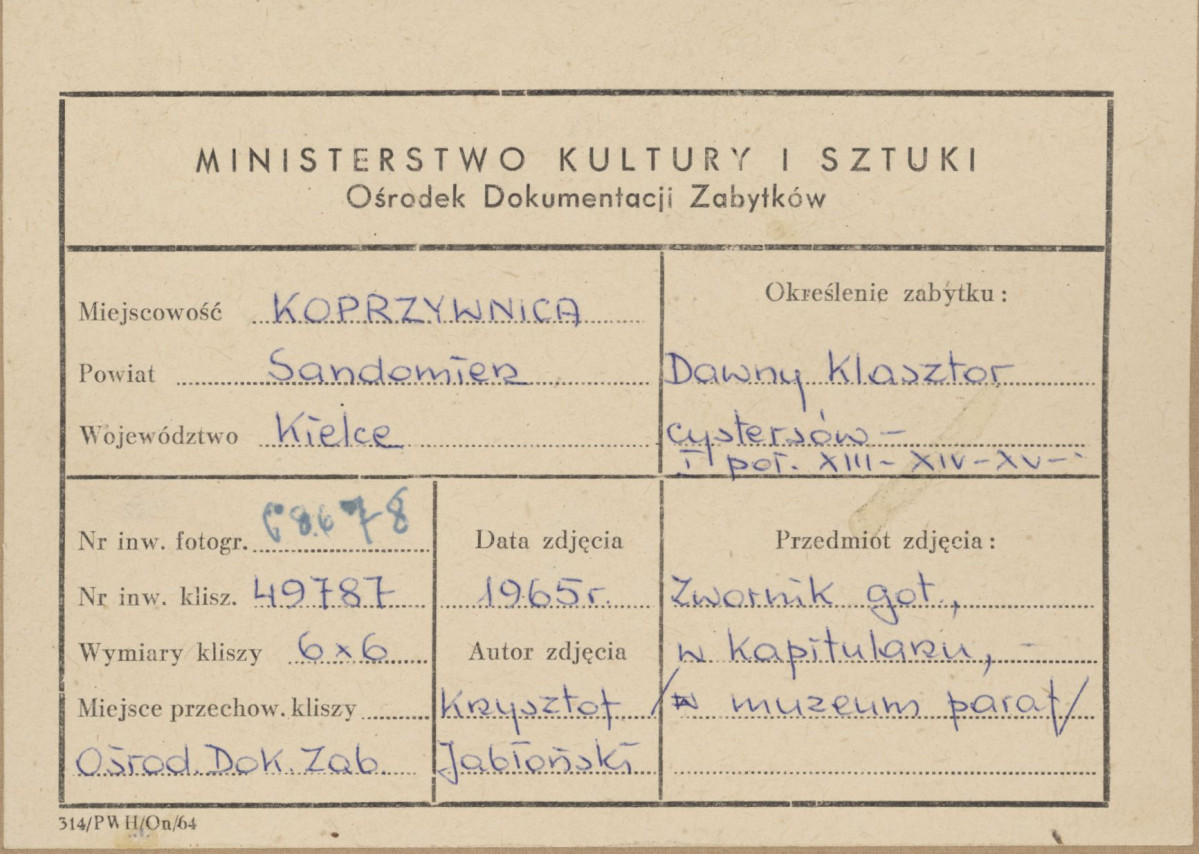 MINISTERSTWO KULTURY I SZTUKI
Ośrodek Dokumentacji Zabytków
Miejscowość KOPRZYWNICA
Powiat Sandomierz
Województwo Kielce
Określenie zabytku:
Dawny Klasztor
cystersów –
I poł. XIII – XIV – XV –
Nr inw. fotogr. 68678
Nr inw. klisz. 49787
Wymiary kliszy 6×6
Miejsce przechow. kliszy
Ośrod. Dok. Zab.
Data zdjęcia
1965 r.
Autor zdjęcia
Krzysztof
Jabłoński
Przedmiot zdjęcia:
Zwornik got.,
w Kapitularzu, –
/w muzeum paraf/
314/PWH/On/64